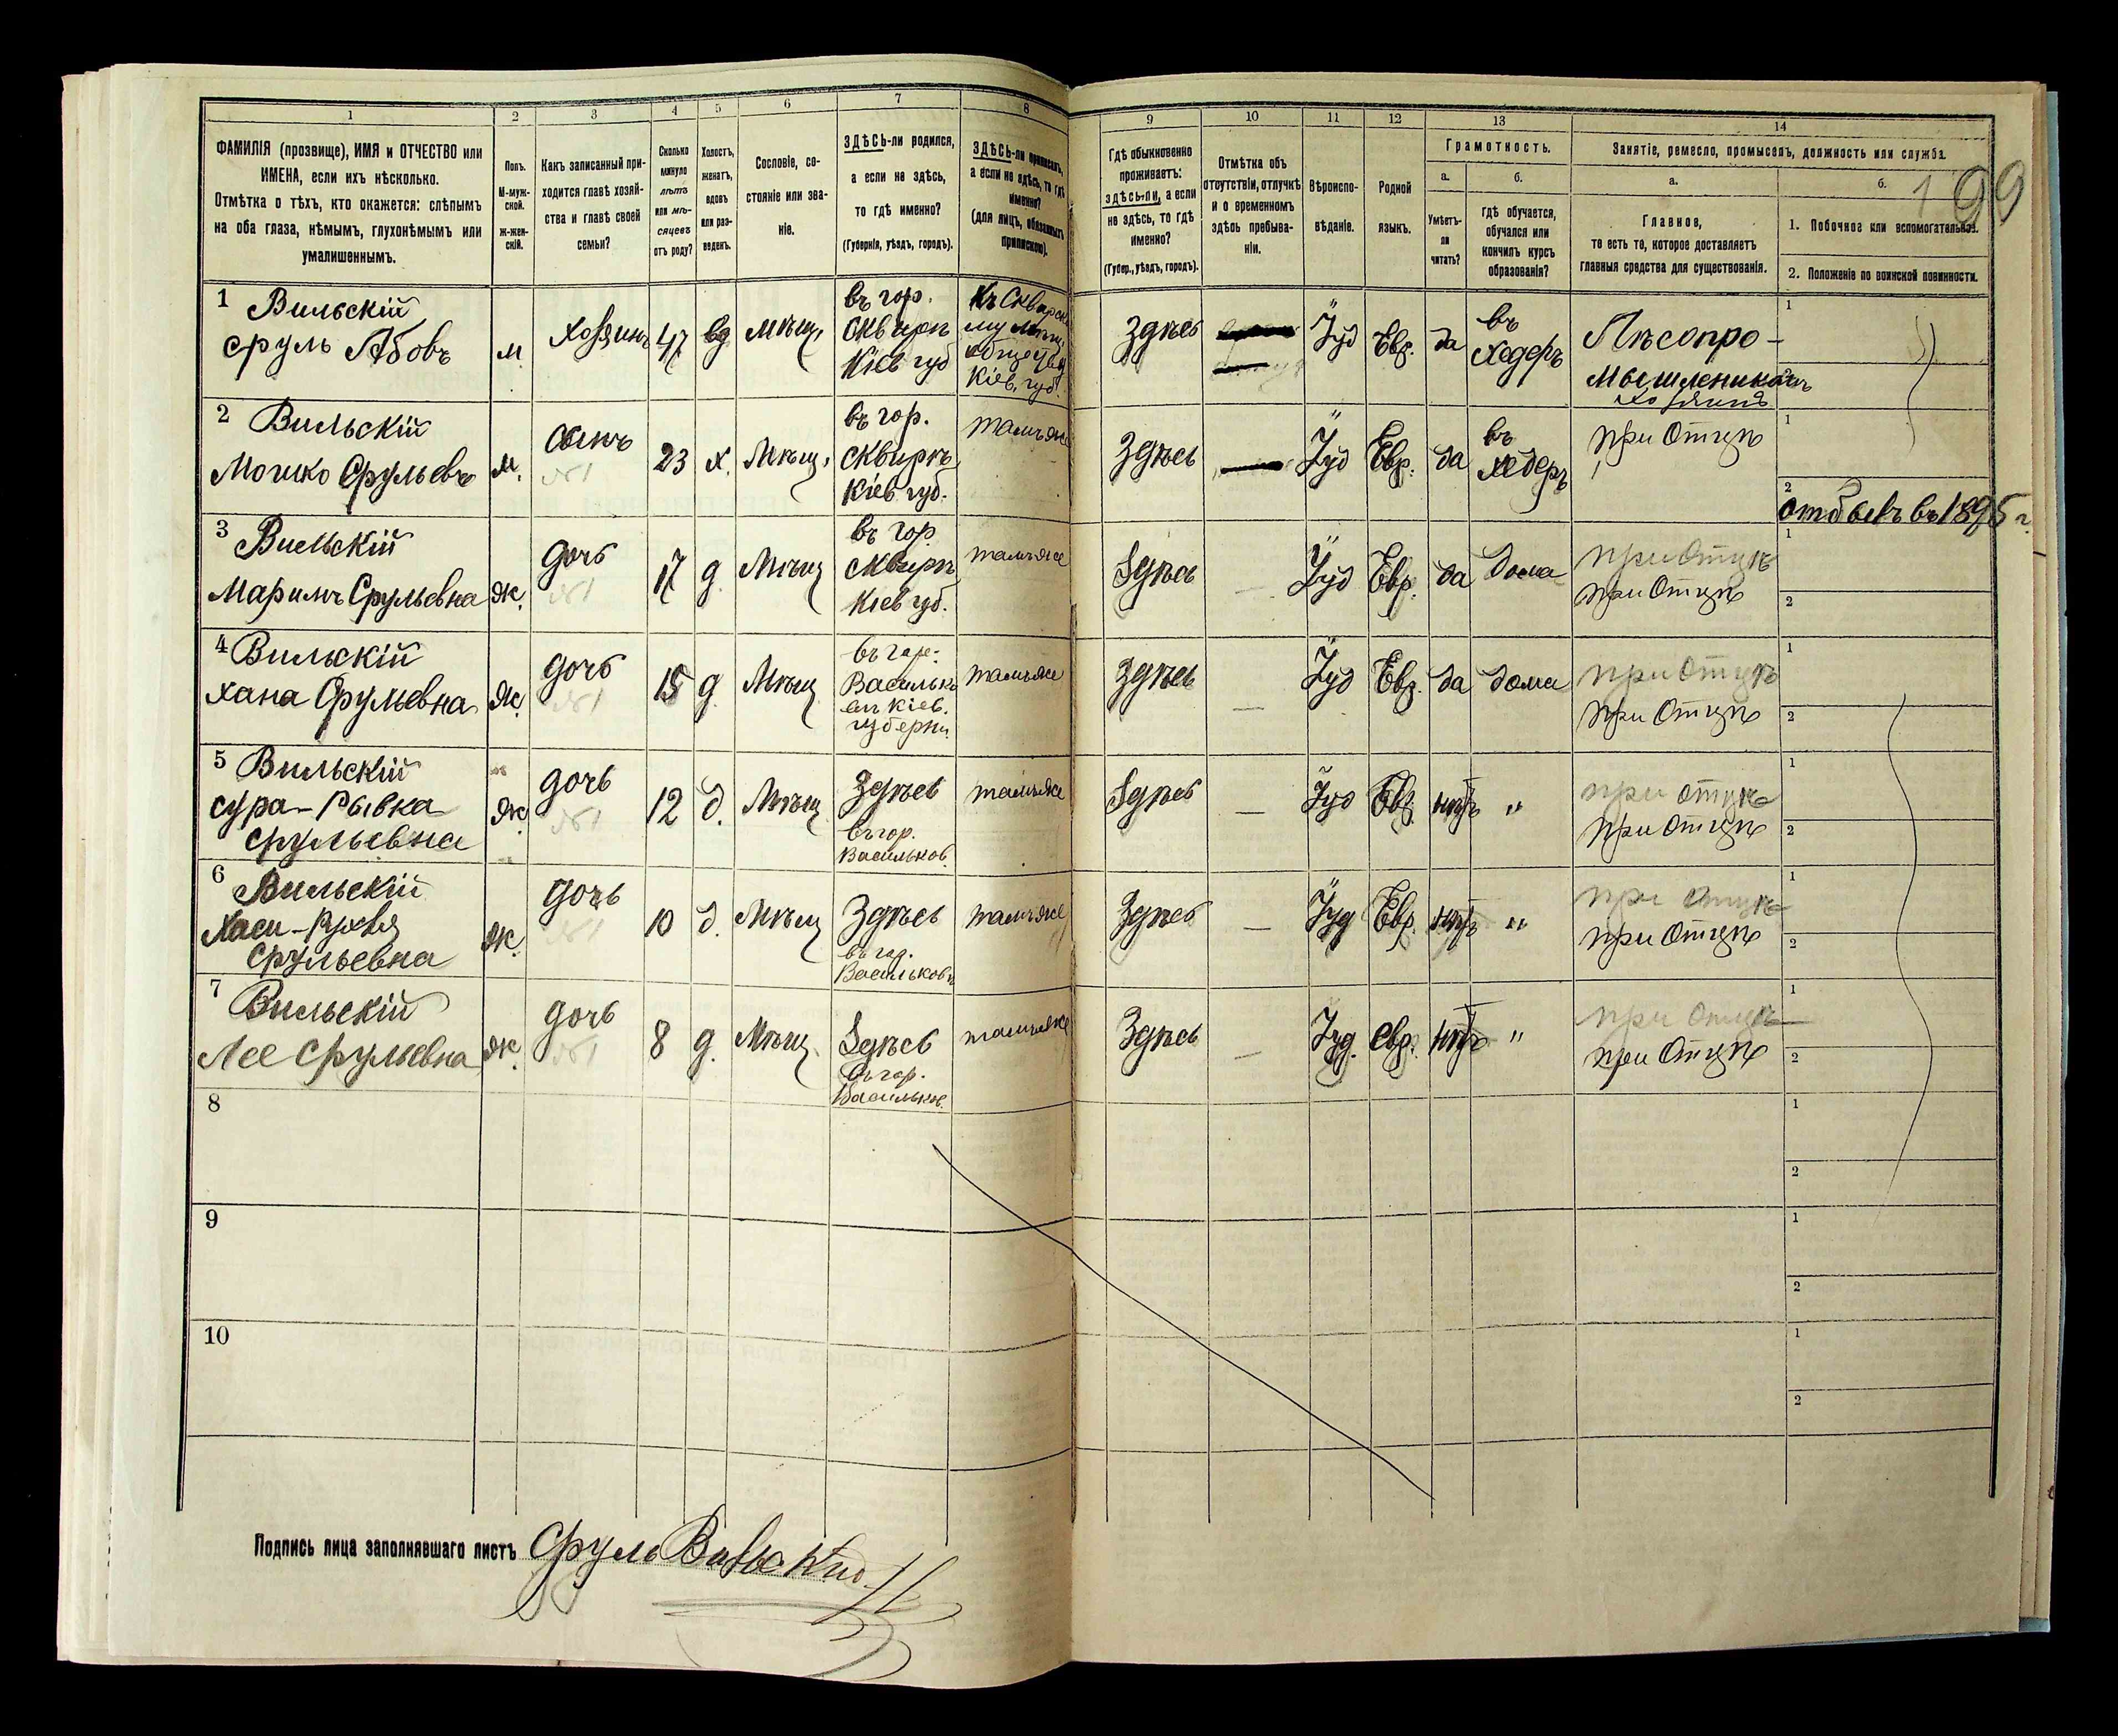 1 2 3 4 5 6 7 8 9 10 11 12 13 14
ФАМИЛІЯ (прозвище), ИМЯ и ОТЧЕСТВО или
ИМЕНА, если ихъ нѣсколько.
Отмѣтка о тѣхъ, кто окажется: слѣпымъ
на оба глаза, нѣмымъ, глухонѣмымъ или
умалишеннымъ.
Полъ.
М-муж-
ской.
Ж-жен-
скій.
Какъ записанный при-
ходится главѣ хозяй-
ства и главѣ своей
семьи?
Сколько
минуло
лѣтъ
или мѣ-
сяцевъ
отъ роду?
Холостъ,
женатъ,
вдовъ
или раз-
веденъ.
Сословіе, со-
стояніе или зва-
ніе.
ЗДѢСЬ-ли родился,
а если не здѣсь,
то гдѣ именно?
(Губернія, уѣздъ, городъ).
ЗДѢСЬ-ли приписанъ,
а если не здѣсь, то гдѣ
именно?
(для лицъ, обязанныхъ
припискою).
Гдѣ обыкновенно
проживаетъ:
здѣсь-ли, а если
не здѣсь, то гдѣ
именно?
(Губер., уѣздъ, городъ).
Отмѣтка объ
отсутствіи, отлучкѣ
и о временномъ
здѣсь пребыва-
ніи.
Вѣроиспо-
вѣданіе.
Родной
языкъ.
Грамотность.
а.
Умѣетъ-
ли
читать?
б.
Гдѣ обучается,
обучался или
кончилъ курсъ
образованія?
Занятіе, ремесло, промыселъ, должность или служба.
а.
Главное,
то есть то, которое доставляетъ
главныя средства для существованія.
б.
1. Побочное или вспомогательное.
2. Положеніе по воинской повинности.
199
1 Вильскій
Сруль Абовъ
м
Хозяинъ
47
вд
Мѣщ.
въ гор.
Сквирѣ
Кіев губ
Къ Сквирско
му мѣщ.
обществу
Кіев. губ.
Здѣсь
Іуд
Евр.
да
въ
Хедерѣ
Лѣсопро-
мышленникъ
хозяинъ
1
2 Вильскій
Мошко Срульевъ
м.
сынъ
№1
23
х.
Мѣщ.
въ гор.
Сквирѣ
Кіев губ.
тамъже
Здѣсь
Іуд
Евр.
да
въ
хедерѣ
при Отцѣ
1
2
отбылъ въ 1895 г.
3 Вильскій
Маримъ Срульевна
ж.
дочь
№1
17
д
Мѣщ
въ гор
Сквирѣ
Кіев губ.
тамъже
Здѣсь
—
Іуд
Евр.
да
дома
при Отцѣ
при Отцѣ
1
2
4 Вильскій
Хана Срульевна
ж.
дочь
№1
15
д
Мѣщ
въ гор.
Васильк
ѣ Кіев.
губерни
тамъже
Здѣсь
—
Іуд
Евр.
да
дома
при Отцѣ
при Отцѣ
1
2
5 Вильскій
Сура-Рывка
Срульевна
ж.
дочь
№1
12
д.
Мѣщ
Здѣсь
въ гор.
Васильков.
тамъже
Здѣсь
—
Іуд
Евр.
нѣтъ
"
при отцѣ
при Отцѣ
1
2
6 Вильскій
Срульевна
ж.
дочь
№1
10
д.
Мѣщ
Здѣсь
въ гор.
Васильковѣ
тамъже
Здѣсь
—
Іуд
Евр.
нѣтъ
"
при Отцѣ
при Отцѣ
1
2
7 Вильскій
Лее Срульевна
ж.
дочь
№1
8
д.
Мѣщ.
Здѣсь
въ гор.
Васильков.
тамъже
Здѣсь
—
Іуд.
Евр.
нѣтъ
"
при Отцѣ
при Отцѣ
1
2
8
1
2
9
1
2
10
1
2
Подпись лица заполнявшаго листъ Сруль Вильскій